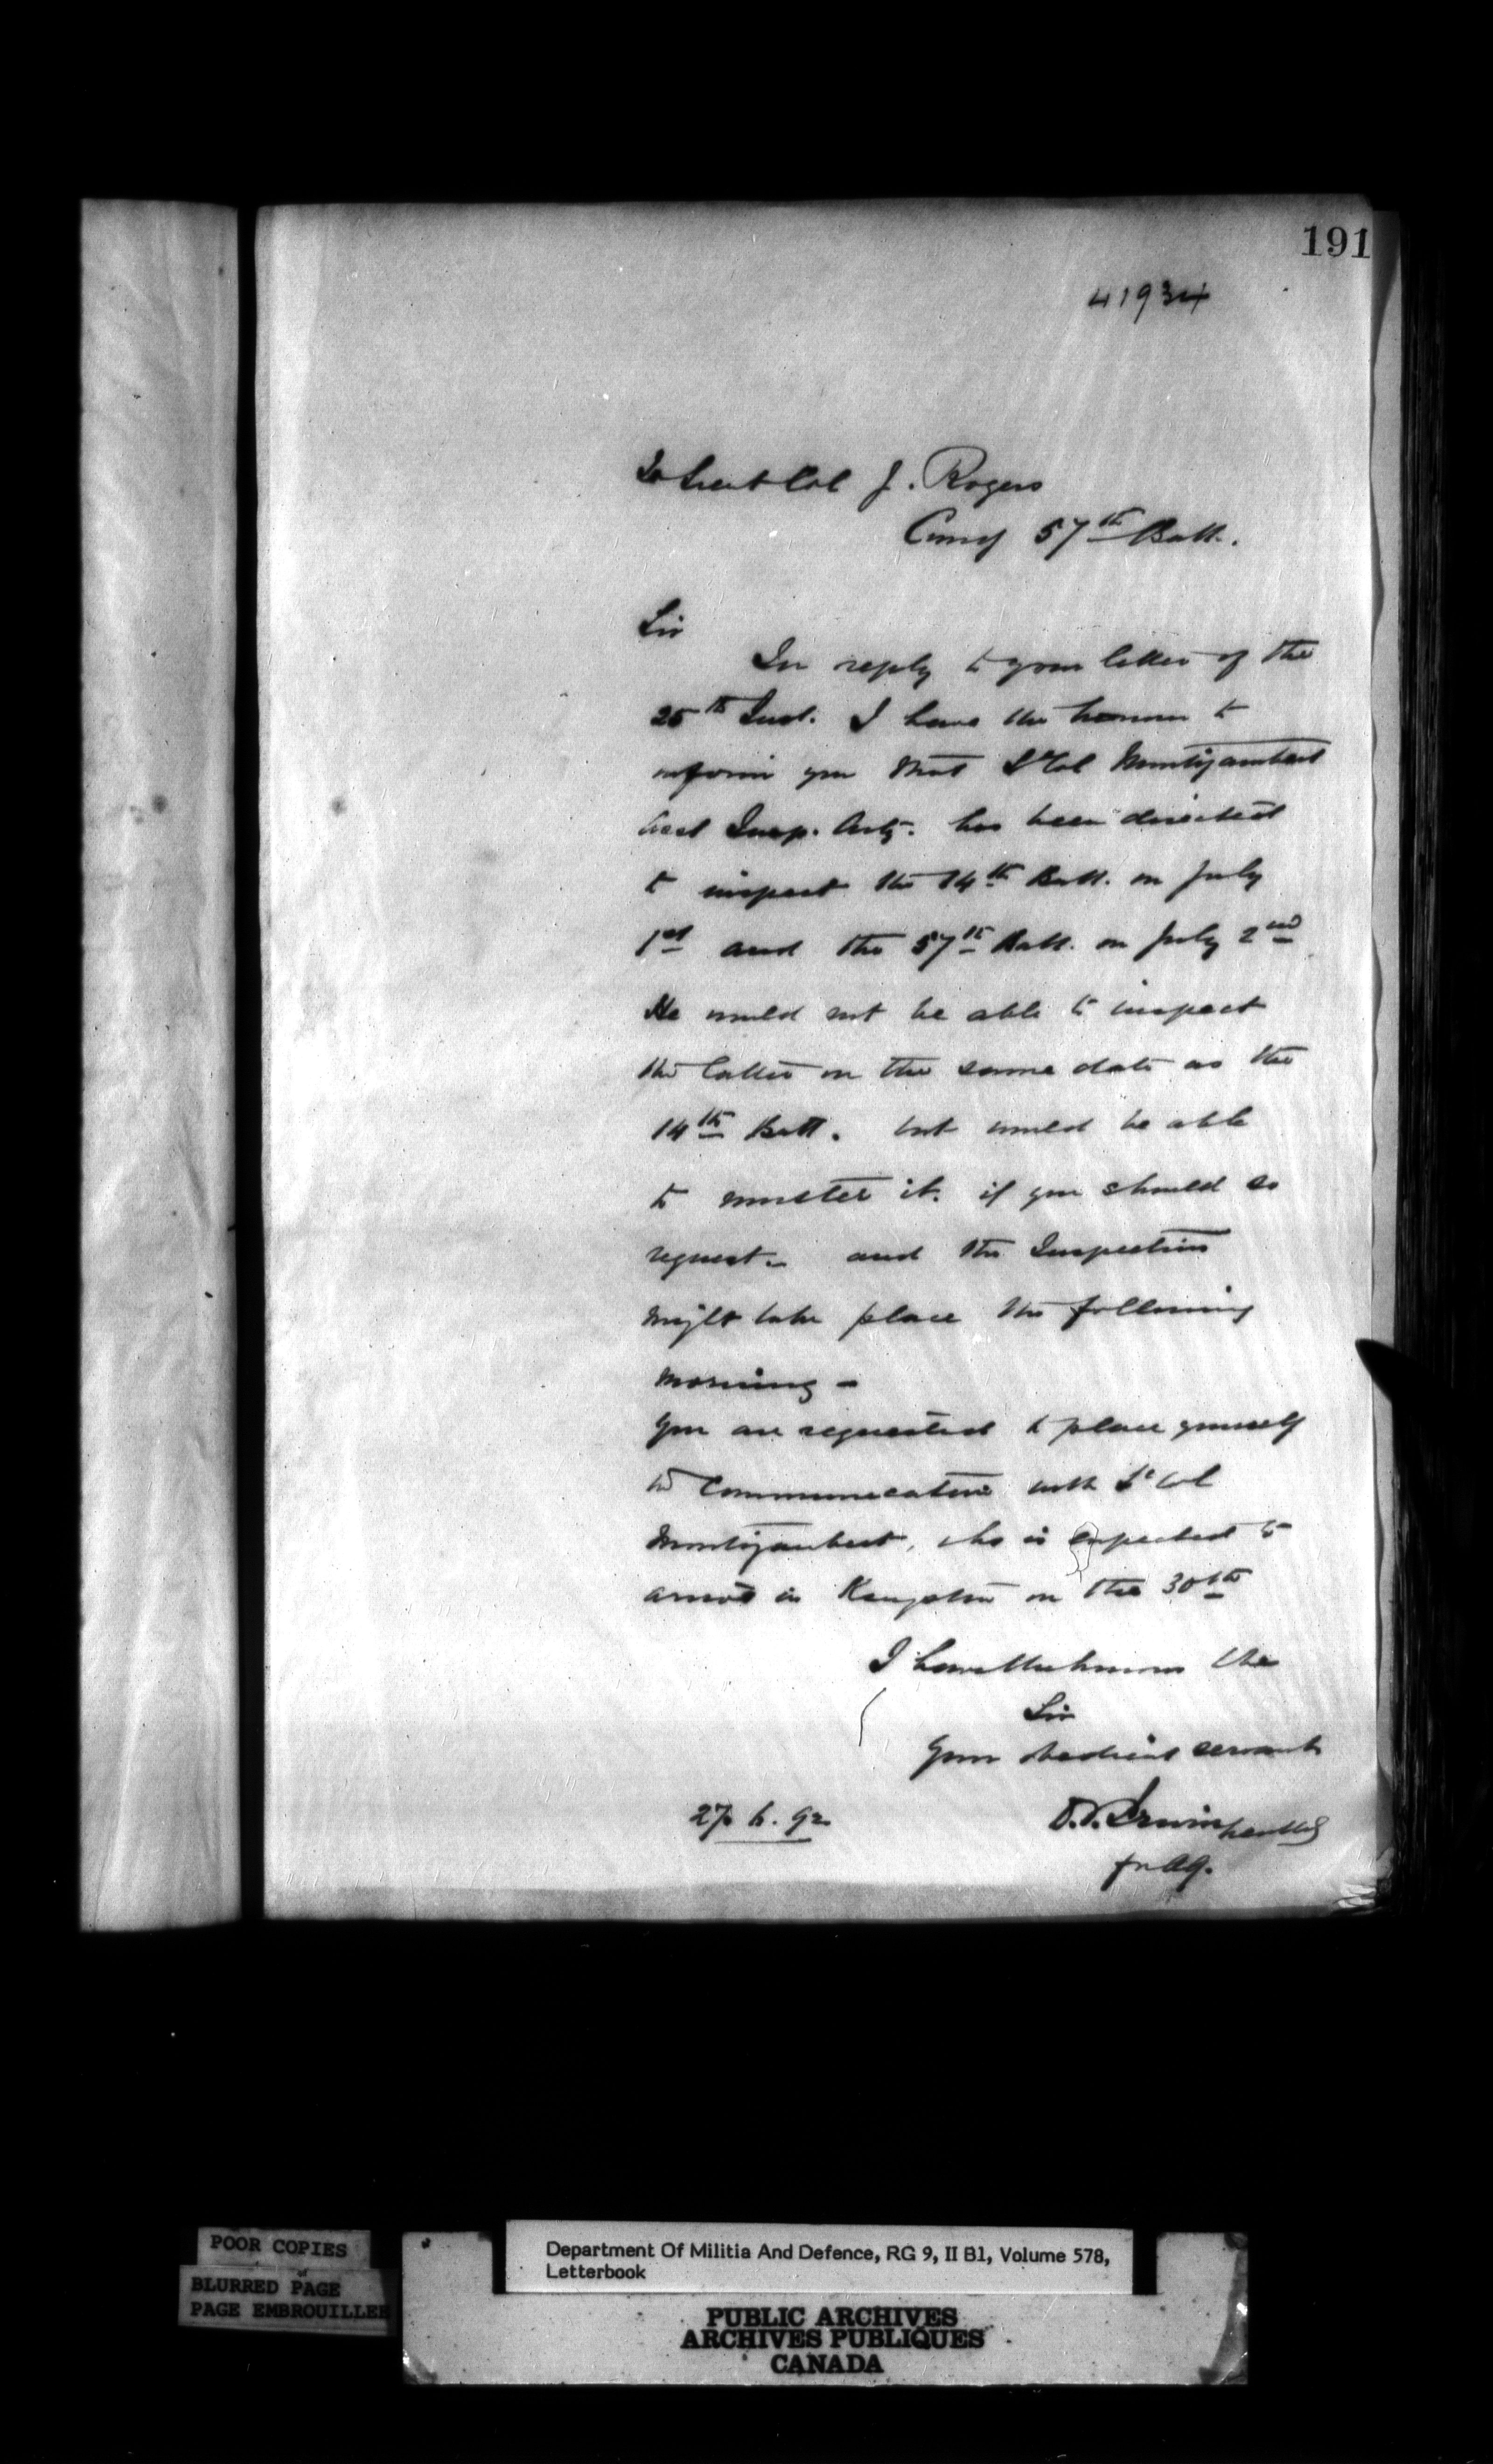 191
41934
To Lieut Col J. Rogers
Comg 57th Batt.
Sir
In reply to your letter of the
25th Inst. I have the honour to
inform you that Lt Col Montizambert
Asst Insp. Arty. has been directed
to inspect the 14th Batt. on July
1st and the 57th Batt. on July 2nd
He would not be able to inspect
the latter on the same date as the
14th Batt. but would be able
to muster it. if you should so
request. and the Inspection
might take place the following
morning -
You are requested to place yourself
in communication with Lt Col
Montizambert, who is expected to
arrive in Kingston on the 30th
I have the honour the
Sir
Your obedient servant
27. 6. 92
D.T. Irwin
for AG.
POOR COPIES
BLURRED PAGE
PAGE EMBROUILLEE
Department Of Militia And Defence, RG 9, II B1, Volume 578,
Letterbook
PUBLIC ARCHIVES
ARCHIVES PUBLIQUES
CANADA